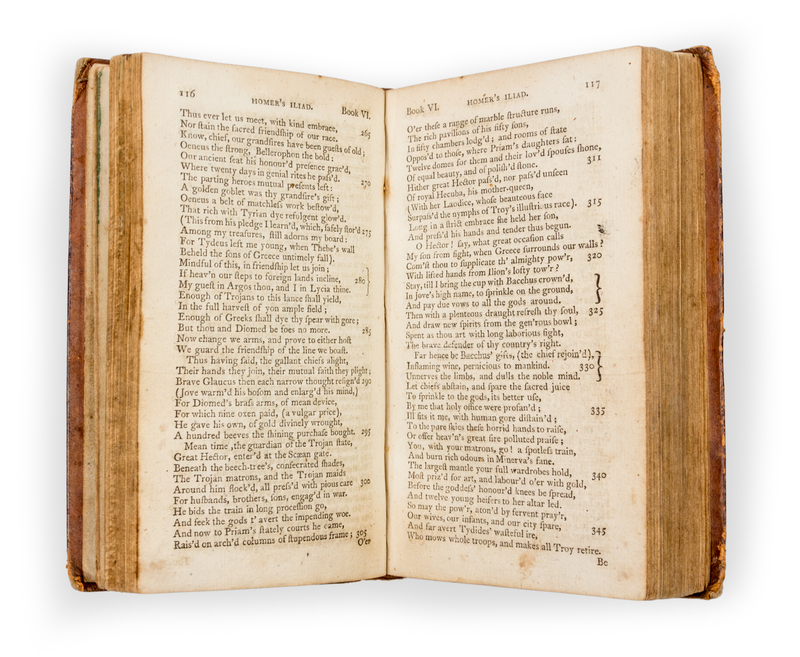 116
HOMER'S ILIAD.
Book VI.
Thus ever let us meet, with kind embrace, 265
Nor ſtain the ſacred friendſhip of our race.
Know, chief, our grandſires have been gueſts of old;
Oeneus the ſtrong, Bellerophon the bold:
Our ancient ſeat his honour'd preſence grac'd,
Where twenty days in genial rites he paſs'd. 270
The parting heroes mutual preſents left:
A golden goblet was thy grandſire's gift;
Oeneus a belt of matchleſs work beſtow'd,
That rich with Tyrian dye refulgent glow'd.
(This from his pledge I learn'd, which, ſafely ſtor'd 275
Among my treaſures, ſtill adorns my board:
For Tydeus left me young, when Thebe's wall
Beheld the ſons of Greece untimely fall).
Mindful of this, in friendſhip let us join;
If heav'n our ſteps to foreign lands incline, 280
My gueſt in Argos thou, and I in Lycia thine.
Enough of Trojans to this lance ſhall yield,
In the full harveſt of yon ample field;
Enough of Greeks ſhall dye thy ſpear with gore;
But thou and Diomed be foes no more. 285
Now change we arms, and prove to either hoſt
We guard the friendſhip of the line we boaſt.
Thus having ſaid, the gallant chiefs alight,
Their hands they join, their mutual faith they plight;
Brave Glaucus then each narrow thought reſign'd 290
(Jove warm'd his boſom and enlarg'd his mind,)
For Diomed's braſs arms, of mean device,
For which nine oxen paid, (a vulgar price),
He gave his own, of gold divinely wrought,
A hundred beeves the ſhining purchaſe bought. 295
Mean time ,the guardian of the Trojan ſtate,
Great Hector, enter'd at the Scæan gate.
Beneath the beech-tree's, conſecrated ſhades,
The Trojan matrons, and the Trojan maids
Around him flock'd, all preſs'd with pious care 300
For huſbands, brothers, ſons, engag'd in war.
He bids the train in long proceſſion go,
And ſeek the gods t' avert the impending woe.
And now to Priam's ſtately courts he came,
Rais'd on arch'd columns of ſtupendous frame; 305
O'er
Book VI.
HOMER'S ILIAD.
117
O'er theſe a range of marble ſtructure runs,
The rich pavilions of his fifty ſons,
In fifty chambers lodg'd; and rooms of ſtate
Oppos'd to thoſe, where Priam's daughters ſat:
Twelve domes for them and their lov'd ſpouſes ſhone,
Of equal beauty, and of poliſh'd ſtone. 311
Hither great Hector paſs'd, nor paſs'd unſeen
Of royal Hecuba, his mother-queen,
(With her Laodice, whoſe beauteous face
Surpaſs'd the nymphs of Troy's illuſtrious race). 315
Long in a ſtrict embrace ſhe held her ſon,
And preſs'd his hands and tender thus begun.
O Hector! ſay, what great occaſion calls
My ſon from fight, when Greece ſurrounds our walls?
Com'ſt thou to ſupplicate th' almighty pow'r, 320
With lifted hands from Ilion's lofty tow'r?
Stay, till I bring the cup with Bacchus crown'd,
In Jove's high name, to ſprinkle on the ground,
And pay due vows to all the gods around.
Then with a plenteous draught refreſh thy ſoul, 325
And draw new ſpirits from the gen'rous bowl;
Spent as thou art with long laborious fight,
The brave defender of thy country's right.
Far hence be Bacchus' gifts, (the chief rejoin'd),
Inflaming wine, pernicious to mankind. 330
Unnerves the limbs, and dulls the noble mind.
Let chiefs abſtain, and ſpare the ſacred juice
To ſprinkle to the gods, its better uſe,
By me that holy office were profan'd;
Ill fits it me, with human gore diſtain'd; 335
To the pure ſkies theſe horrid hands to raiſe,
Or offer heav'n's great ſire polluted praiſe;
You, with your matrons, go! a ſpotleſs train,
And burn rich odours in Minerva's fane.
The largeſt mantle your full wardrobes hold, 340
Moſt priz'd for art, and labour'd o'er with gold,
Before the goddeſs' honour'd knees be ſpread,
And twelve young heifers to her altar led.
So may the pow'r, aton'd by fervent pray'r,
Our wives, our infants, and our city ſpare, 345
And far avert Tydides' waſteful ire,
Who mows whole troops, and makes all Troy retire.
Be